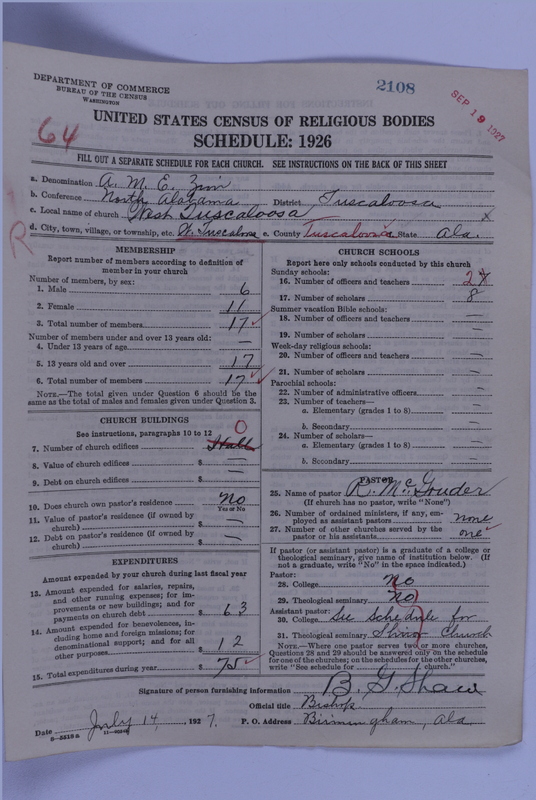 DEPARTMENT OF COMMERCE
BUREAU OF THE CENSUS
WASHINGTON
2108
SEP 19 1927
64
UNITED STATES CENSUS OF RELIGIOUS BODIES
SCHEDULE: 1926
FILL OUT A SEPARATE SCHEDULE FOR EACH CHURCH. SEE INSTRUCTIONS ON THE BACK OF THIS SHEET
a. Denomination A. M. E. Zion
b. Conference North Alabama District Tuscaloosa
c. Local name of church West Tuscaloosa x
d. City, town, village, or township, etc. W. Tuscaloosa e. County Tuscaloosa State Ala.
R
MEMBERSHIP
Report number of members according to definition of
member in your church
Number of members, by sex:
1. Male 6
2. Female 11
3. Total number of members 17 ✓
Number of members under and over 13 years old:
4. Under 13 years of age —
5. 13 years old and over 17
6. Total number of members 17 ✓✓
NOTE.—The total given under Question 6 should be the
same as the total of males and females given under Question 3.
CHURCH BUILDINGS
See instructions, paragraphs 10 to 12
0
7. Number of church edifices Hall
8. Value of church edifices $ —
9. Debt on church edifices $ —
10. Does church own pastor's residence No
Yes or No
11. Value of pastor's residence (if owned by
church) $ —
12. Debt on pastor's residence (if owned by
church) $ —
EXPENDITURES
Amount expended by your church during last fiscal year
13. Amount expended for salaries, repairs,
and other running expenses; for im-
provements or new building; and for
payments on church debt $ 63
14. Amount expended for benevolences, in-
cluding home and foreign missions; for
denominational support; and for all
other purposes $ 12
15. Total expenditures during year $ 75 ✓
CHURCH SCHOOLS
Report here only schools conducted by this church
Sunday schools:
16. Number of officers and teachers 2
17. Number of scholars 8
Summer vacation Bible schools:
18. Number of officers and teachers —
19. Number of scholars —
Week-day religious schools:
20. Number of officers and teachers —
21. Number of scholars —
Parochial schools:
22. Number of administrative officers —
23. Number of teachers—
a. Elementary (grades 1 to 8) —
b. Secondary —
24. Number of scholars—
a. Elementary (grades 1 to 8) —
b. Secondary —
PASTOR
25. Name of pastor R. McGouder
(If church has no pastor, write "None")
26. Number of ordained ministers, if any, em-
ployed as assistant pastors none
27. Number of other churches served by the
pastor or his assistants one ✓
If pastor (or assistant pastor) is a graduate of a college or
theological seminary, give name of institution below. (If
not a graduate, write "No" in the space indicated.)
Pastor:
28. College No
29. Theological seminary No
Assistant pastor:
30. College See schedule for
31. Theological seminary Church
NOTE.—Where one pastor serves two or more churches,
Questions 28 and 29 should be answered only on the schedule
for one of the churches; on the schedules for the other churches,
write "See schedule for church."
Signature of person furnishing information B. G. Shaw
Official title Bishop
Date July 14, 1927. P. O. Address Birmingham, Ala